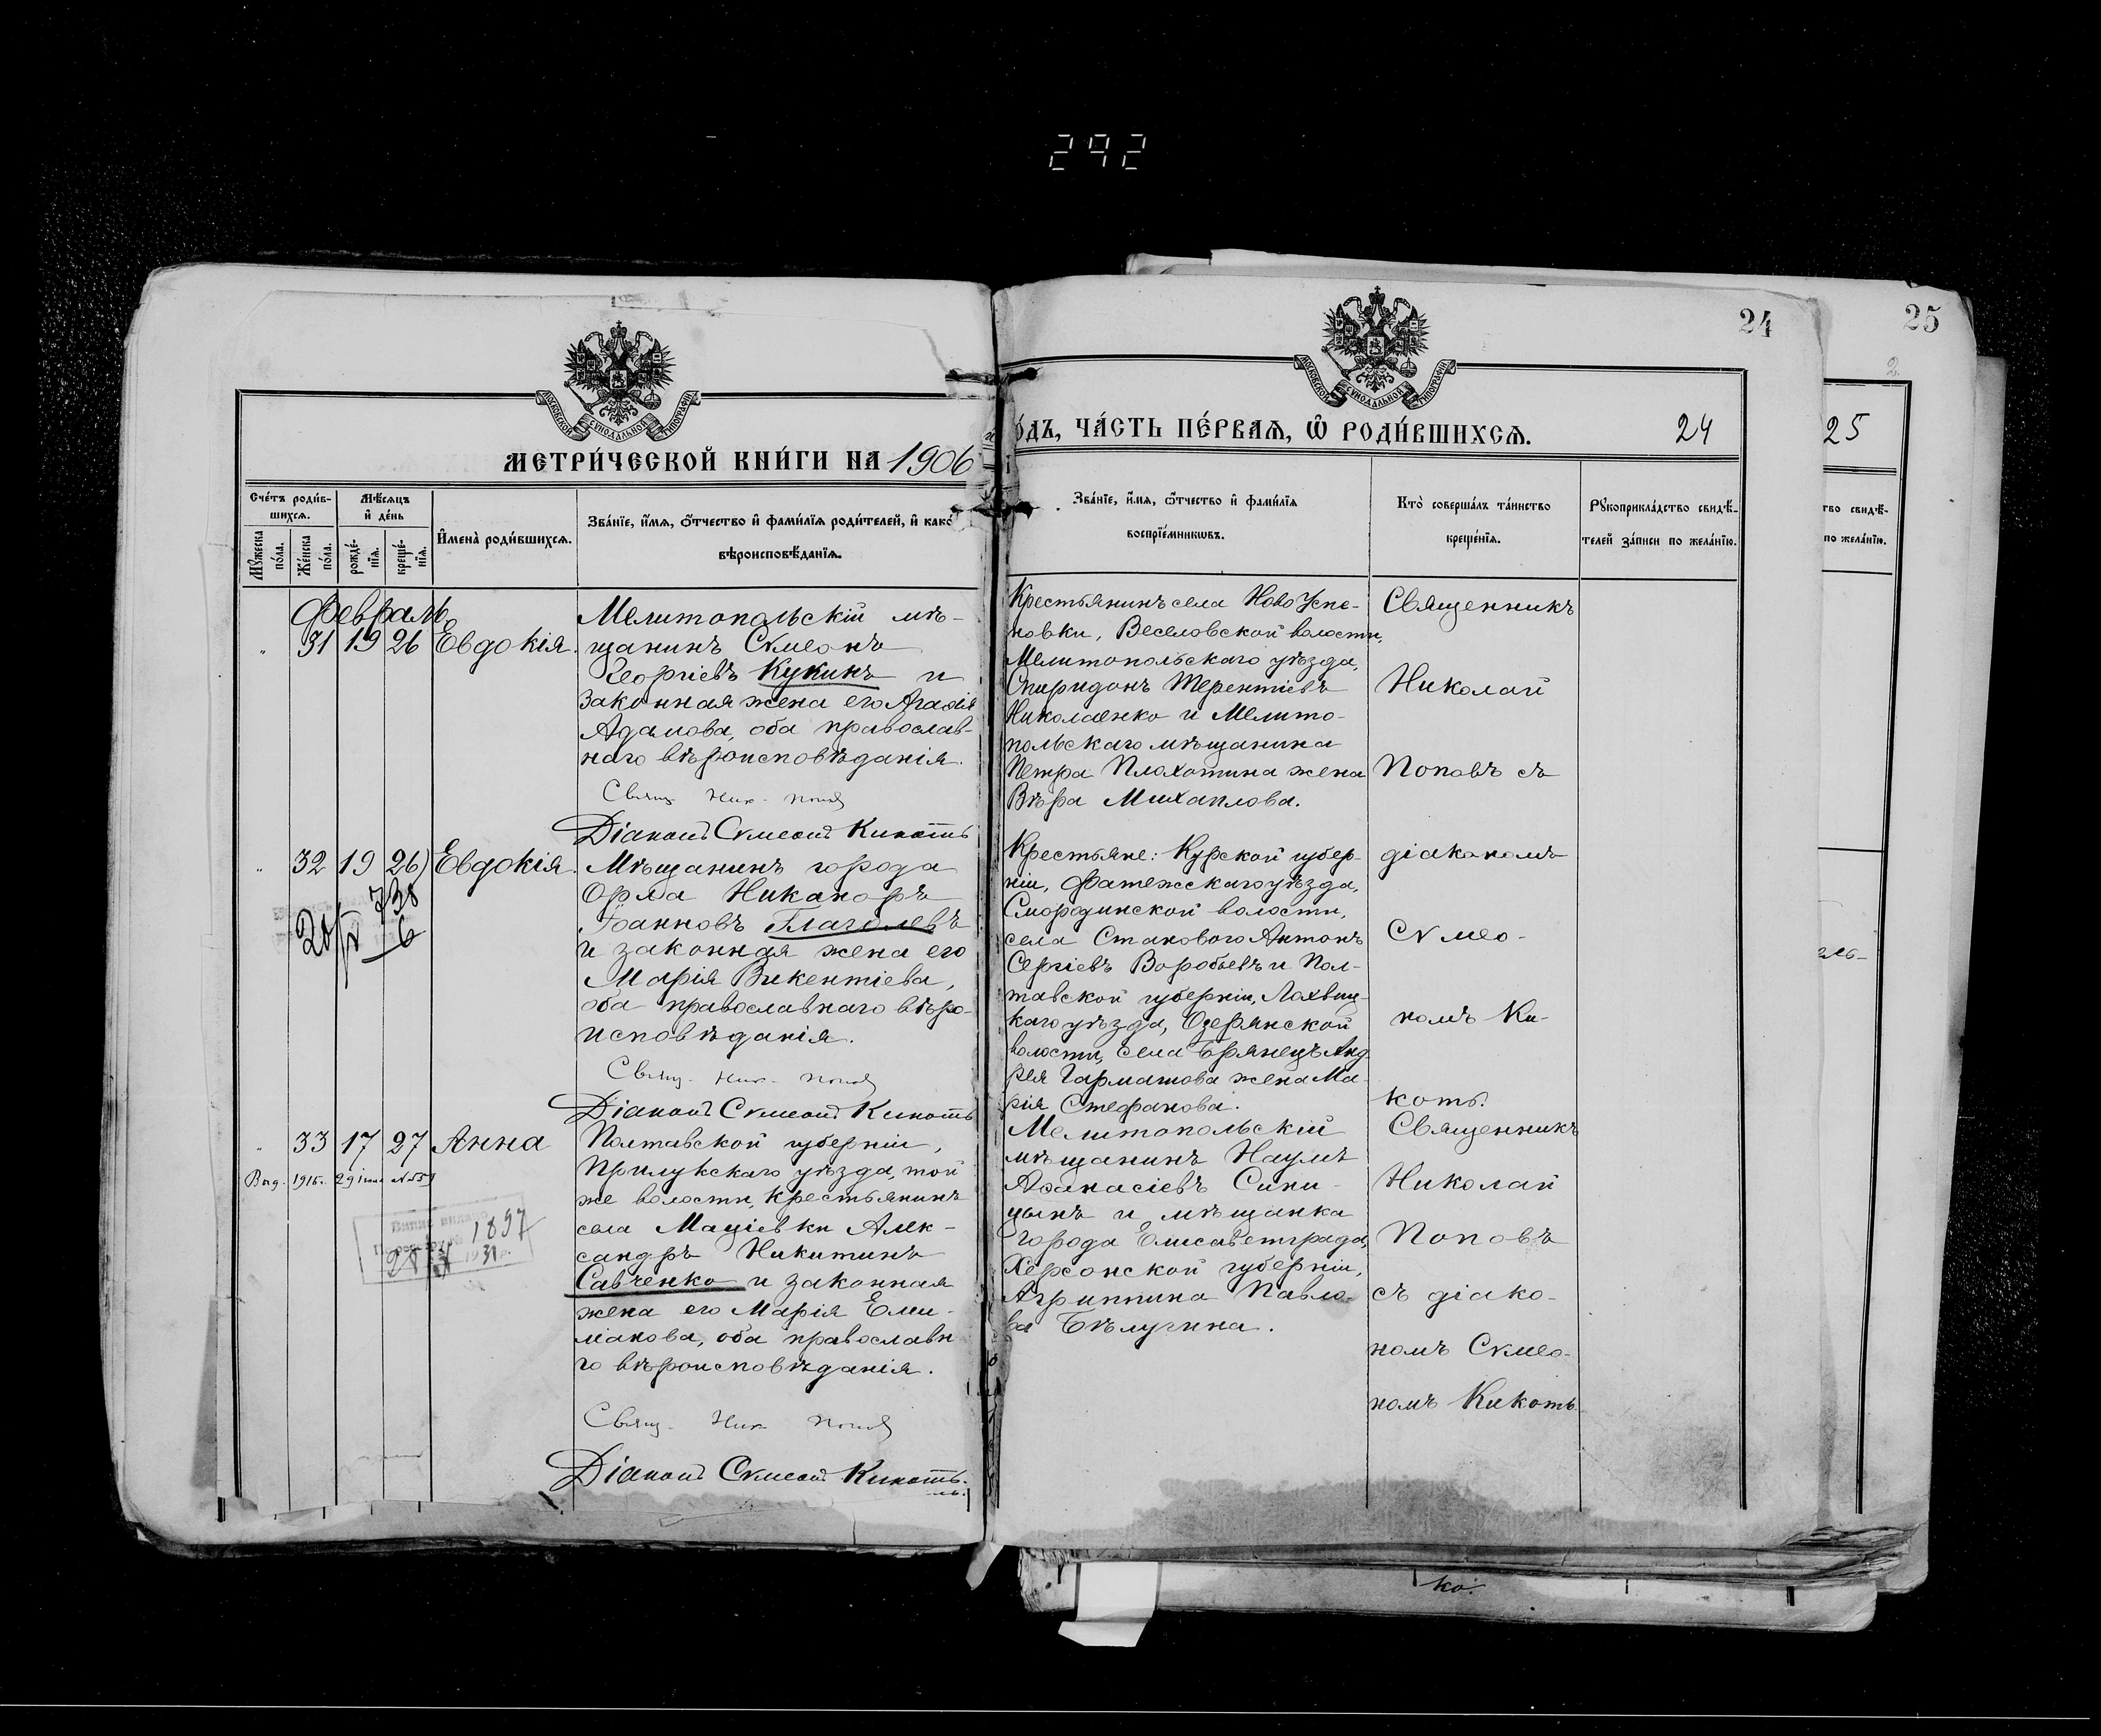 292
24
25
МОСКОВСКОЙ СѴНОДАЛЬНОЙ ТИПОГРАФІИ
МОСКОВСКОЙ СѴНОДАЛЬНОЙ ТИПОГРАФІИ
МЕТРИ́ЧЕСКОЙ КНИ́ГИ НА 1906
О́ДЪ, ЧА́СТЬ ПЕ́РВАЯ, Ѡ҆ РОДИ́ВШИХСЯ.
24
25
Сче́тъ роди́в-
шихся.
Мѣ́сяцъ
и҆ де́нь
Мꙋ́жеска по́ла.
Же́нска по́ла.
рожде́-нїя.
креще́-нїя.
И҆мена̀ роди́вшихся.
Зва́нїе, и҆́мя, ѻ҆́тчество и҆ фами́лїя роди́телей, и҆ како́
вѣроисповѣ́данїя.
Зва́нїе, и҆́мя, ѻ҆́тчество и҆ фами́лїя
воспрїе́мниквъ.
Кто̀ соверша́лъ та́инство
креще́нїя.
Рꙋкоприкла́дство свидѣ́-
телей за́писи по жела́нїю.
тво свидѣ́-
по жела́нїю.
Февраль
" 31 19 26 Евдокія.
Мелитопольскій мѣ-
щанинъ Сѵмеонъ
Георгіевъ Кукинъ и
законная жена его Агаѳія
Адамова, оба православ-
наго вѣроисповѣданія.
Свящ. Ник. Попов
Діаконъ Сѵмеонъ Кикоть
Крестьянинъ села НовоУспе-
новки, Веселовской волости,
Мелитопольскаго уѣзда,
Спиридонъ Терентіевъ
Николаенко и Мелито-
польскаго мѣщанина
Петра Плахотина жена
Вѣра Михаилова.
Священникъ
Николай
Поповъ съ
діакономъ
Сѵмео-
номъ Ки-
коть.
" 32 19 26) Евдокія.
738
6
Мѣщанинъ города
Орла Никаноръ
Іоанновъ Глаголевъ
и законная жена его
Марія Викентіева,
оба православнаго вѣро-
исповѣданія.
Свящ. Ник. Попов
Діаконъ Сѵмеонъ Кикоть
Крестьяне: Курской губер-
ніи, Фатежскаго уѣзда,
Смородинской волости,
села Становаго Антонъ
Сергіевъ Воробьевъ и Пол-
тавской губерніи, Лохвиц-
каго уѣзда, Озерянской
волости, села Брянецъ Анд-
рея Гарматова жена Ма-
рія Стефанова.
" 33 17 27 Анна
Выд. 1916г. 29 іюня №551
1897
28 XI 1931 р.
Полтавской губерніи,
Прилукскаго уѣзда, той
же волости, крестьянинъ
села Маціевки Алек-
сандръ Никитинъ
Савченко и законная
жена его Марія Еми-
ліанова, оба православн
го вѣроисповѣданія.
Свящ. Ник. Попов
Діаконъ Сѵмеонъ Кикоть.
Мелитопольскій
мѣщанинъ Наумъ
Аѳанасіевъ Сини-
цынъ и мѣщанка
города Елисаветграда,
Херсонской губерніи,
Агриппина Павло-
ва Бѣлугина.
Священникъ
Николай
Поповъ
съ діако-
номъ Сѵмео-
номъ Кикоть
ко.